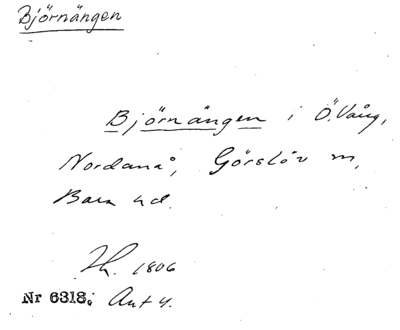 Björnängen
Björnängen i Ö. Vång,
Nordanå, Görslöv m,
Bara hd.
1806
Nr 6318.